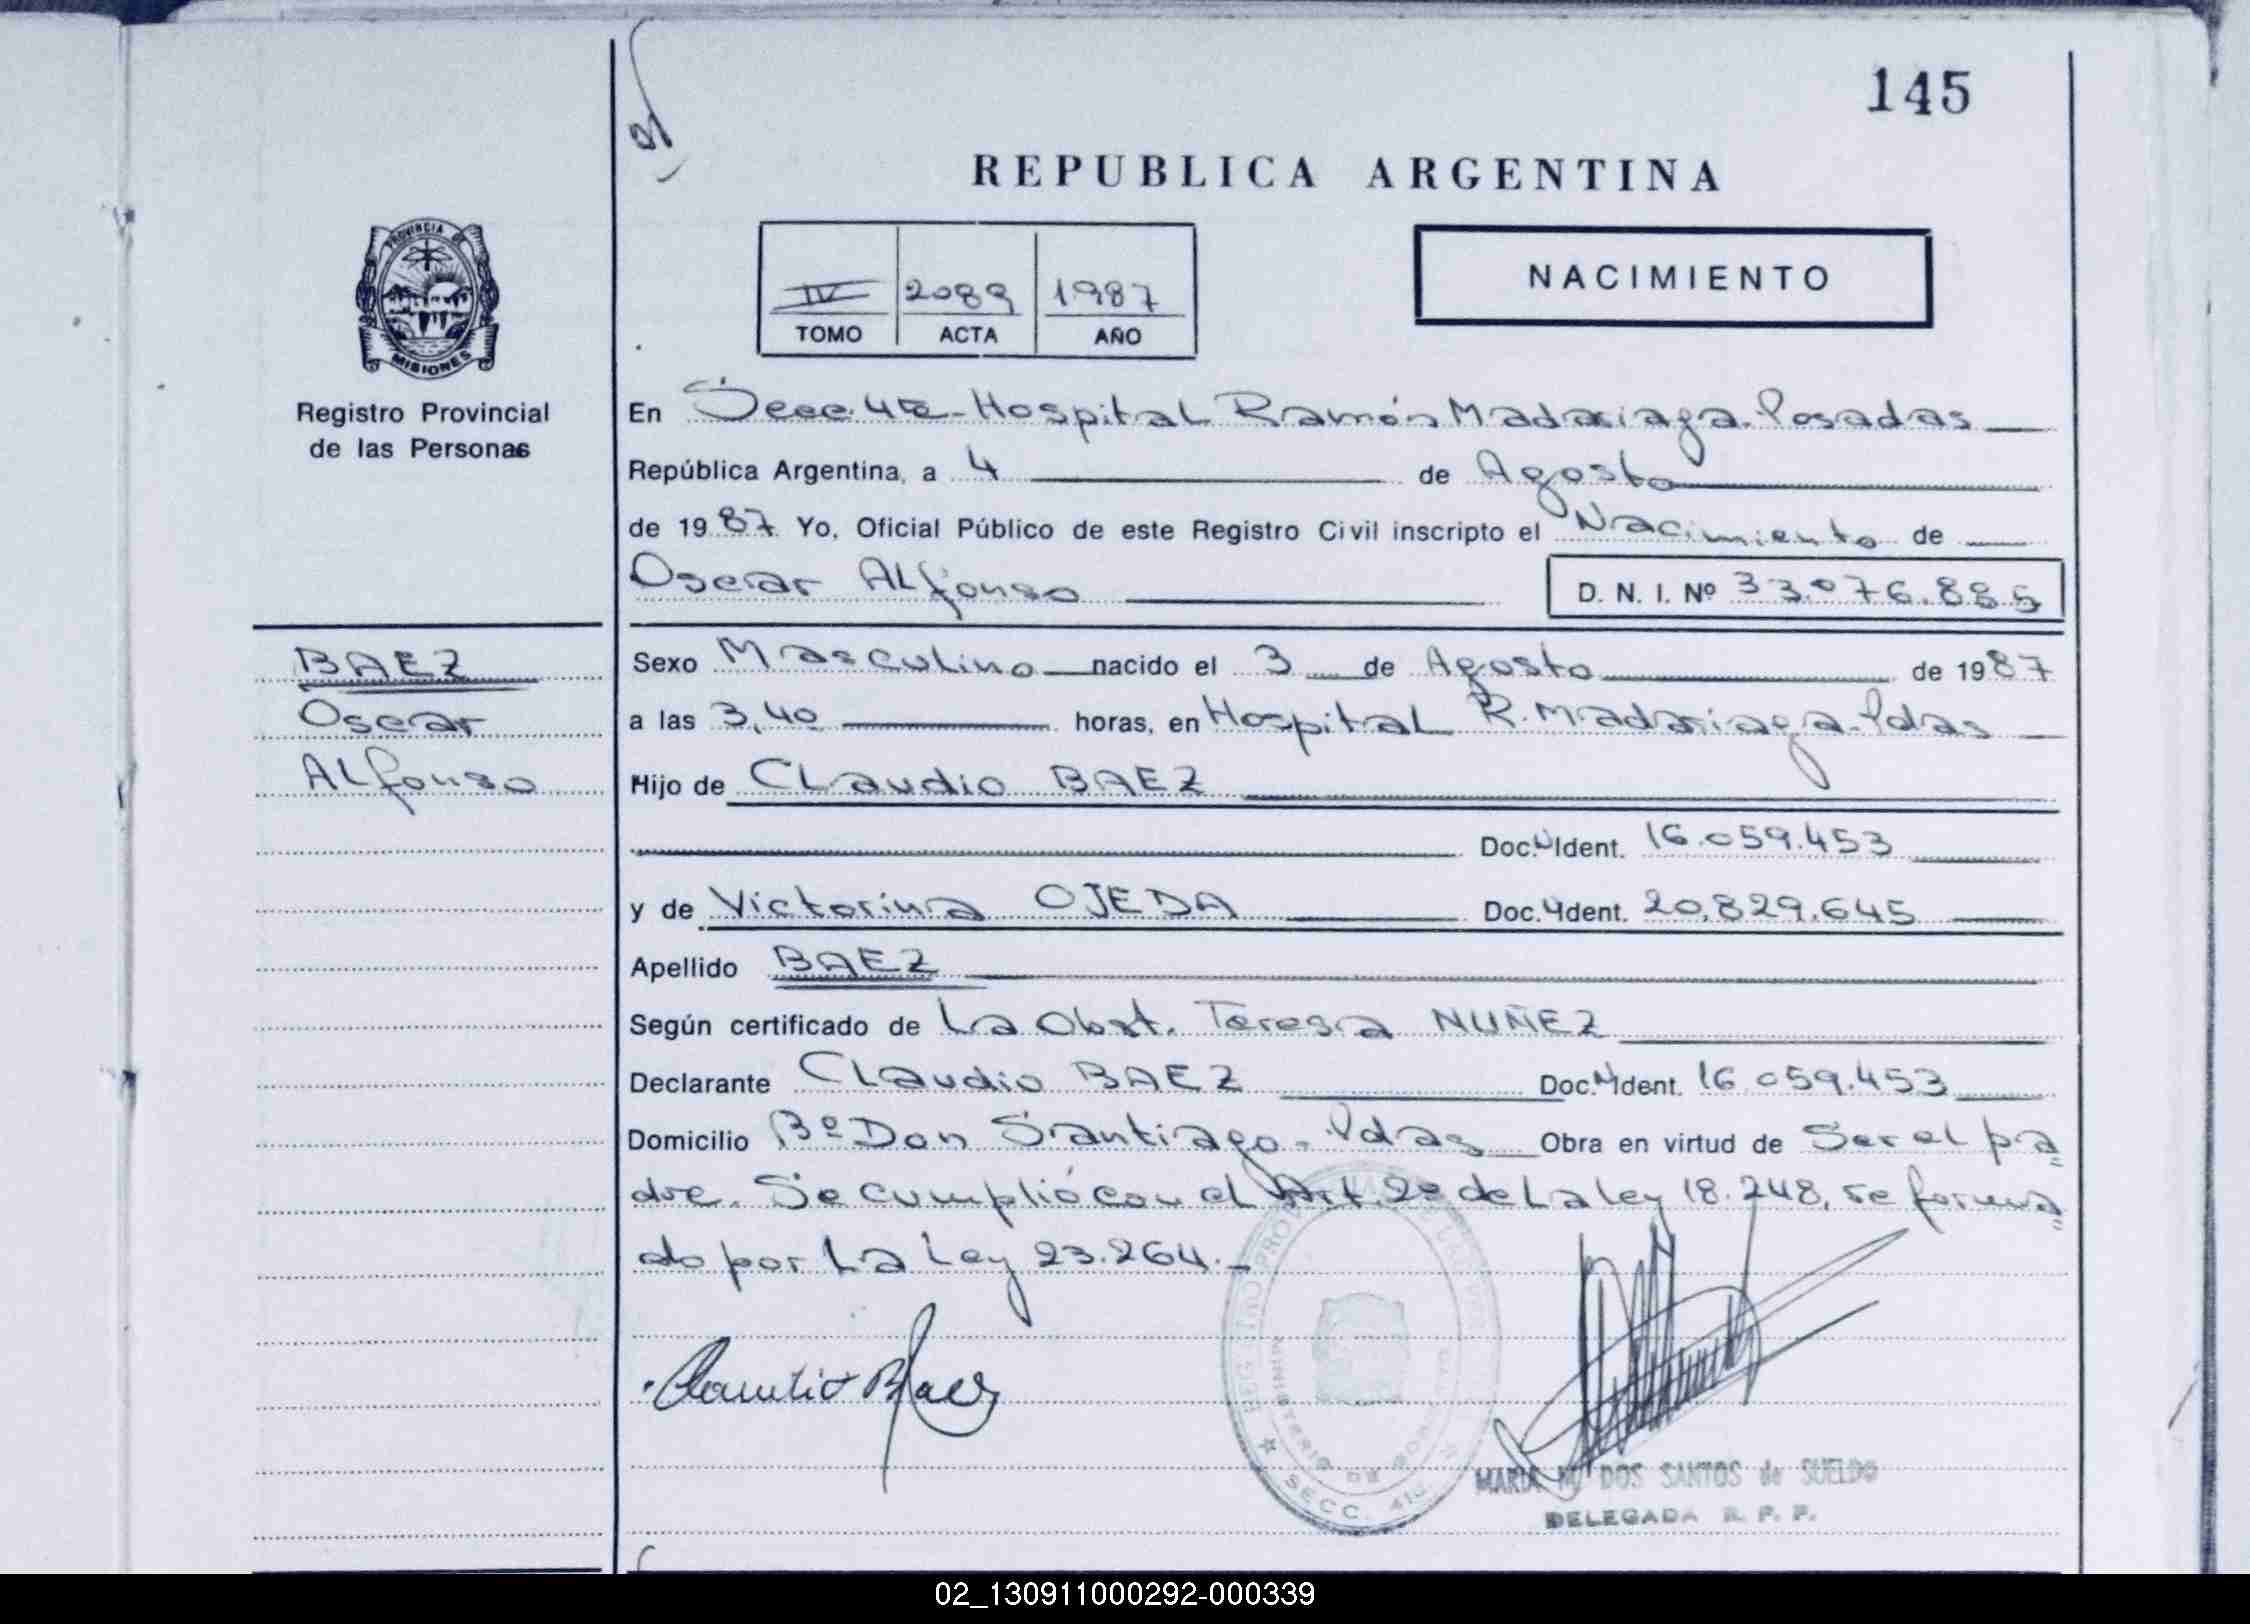 145
REPUBLICA ARGENTINA
PROVINCIA DE
MISIONES
Registro Provincial
de las Personas
IV 2089 1987
TOMO ACTA AÑO
NACIMIENTO
En Secc. 4ta - Hospital Ramón Madariaga. Posadas
República Argentina, a 4 de Agosto
de 1987 Yo, Oficial Público de este Registro Civil inscripto el Nacimiento de
Oscar Alfonso D. N. I. Nº 33.076.885
BAEZ
Oscar
Alfonso
Sexo Masculino nacido el 3 de Agosto de 1987
a las 3,40 horas, en Hospital R. Madariaga. Pdas
Hijo de Claudio BAEZ
Doc. Ident. 16.059.453
y de Victorina OJEDA Doc. Ident. 20.829.645
Apellido BAEZ
Según certificado de La Obst. Teresa NUÑEZ
Declarante Claudio BAEZ Doc. Ident. 16.059.453
Domicilio Bº Don Santiago. Pdas Obra en virtud de Ser el pa
dre. Se cumplió con el Art. 2º de La Ley 18.248, re forma
do por La Ley 23.264.
Claudio Baez
SECC. 4ta
MARIA M. DOS SANTOS de SUELDO
DELEGADA R. P. P.
02_130911000292-000339